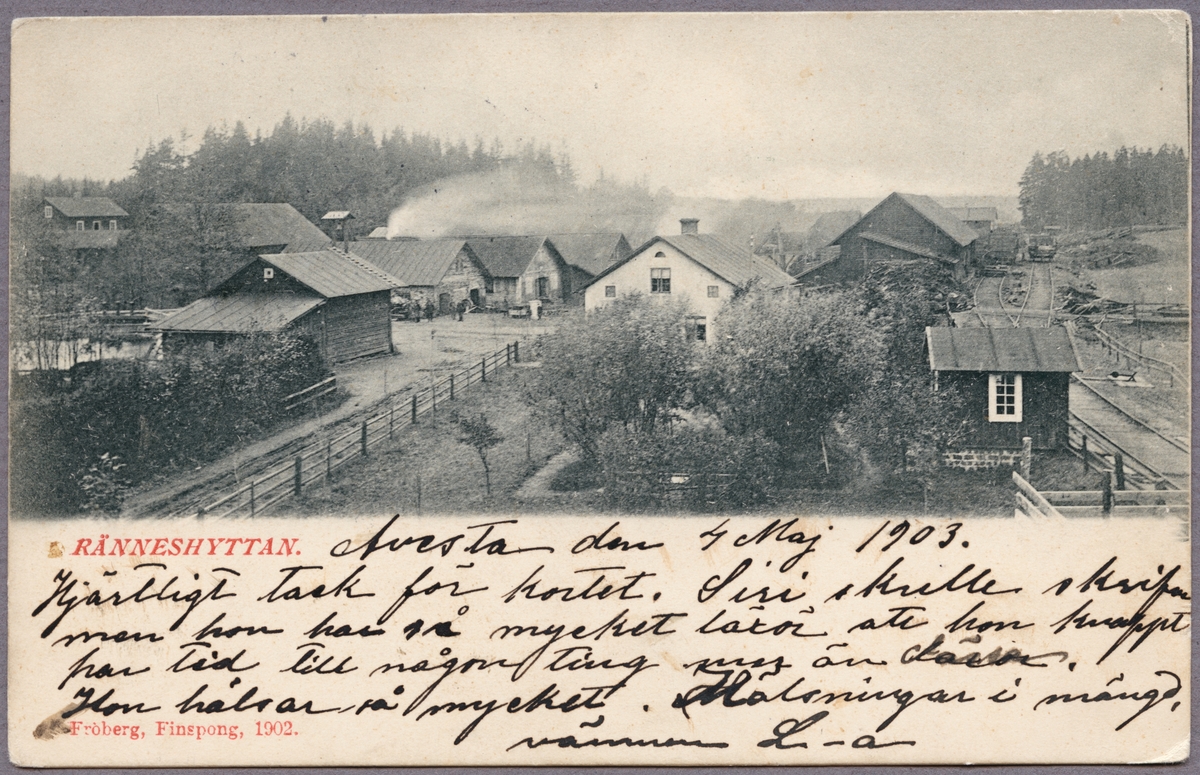 RÄNNESHYTTAN. Avesta den 4 Maj 1903.
Hjärtligt tack för kortet. Siri skulle skrifva
men hon har så mycket läxor att hon knappt
har tid till någon ting mer än läxor.
Hon hälsar så mycket. Hälsningar i mängd,
Fröberg, Finspong, 1902.
vännen L-a